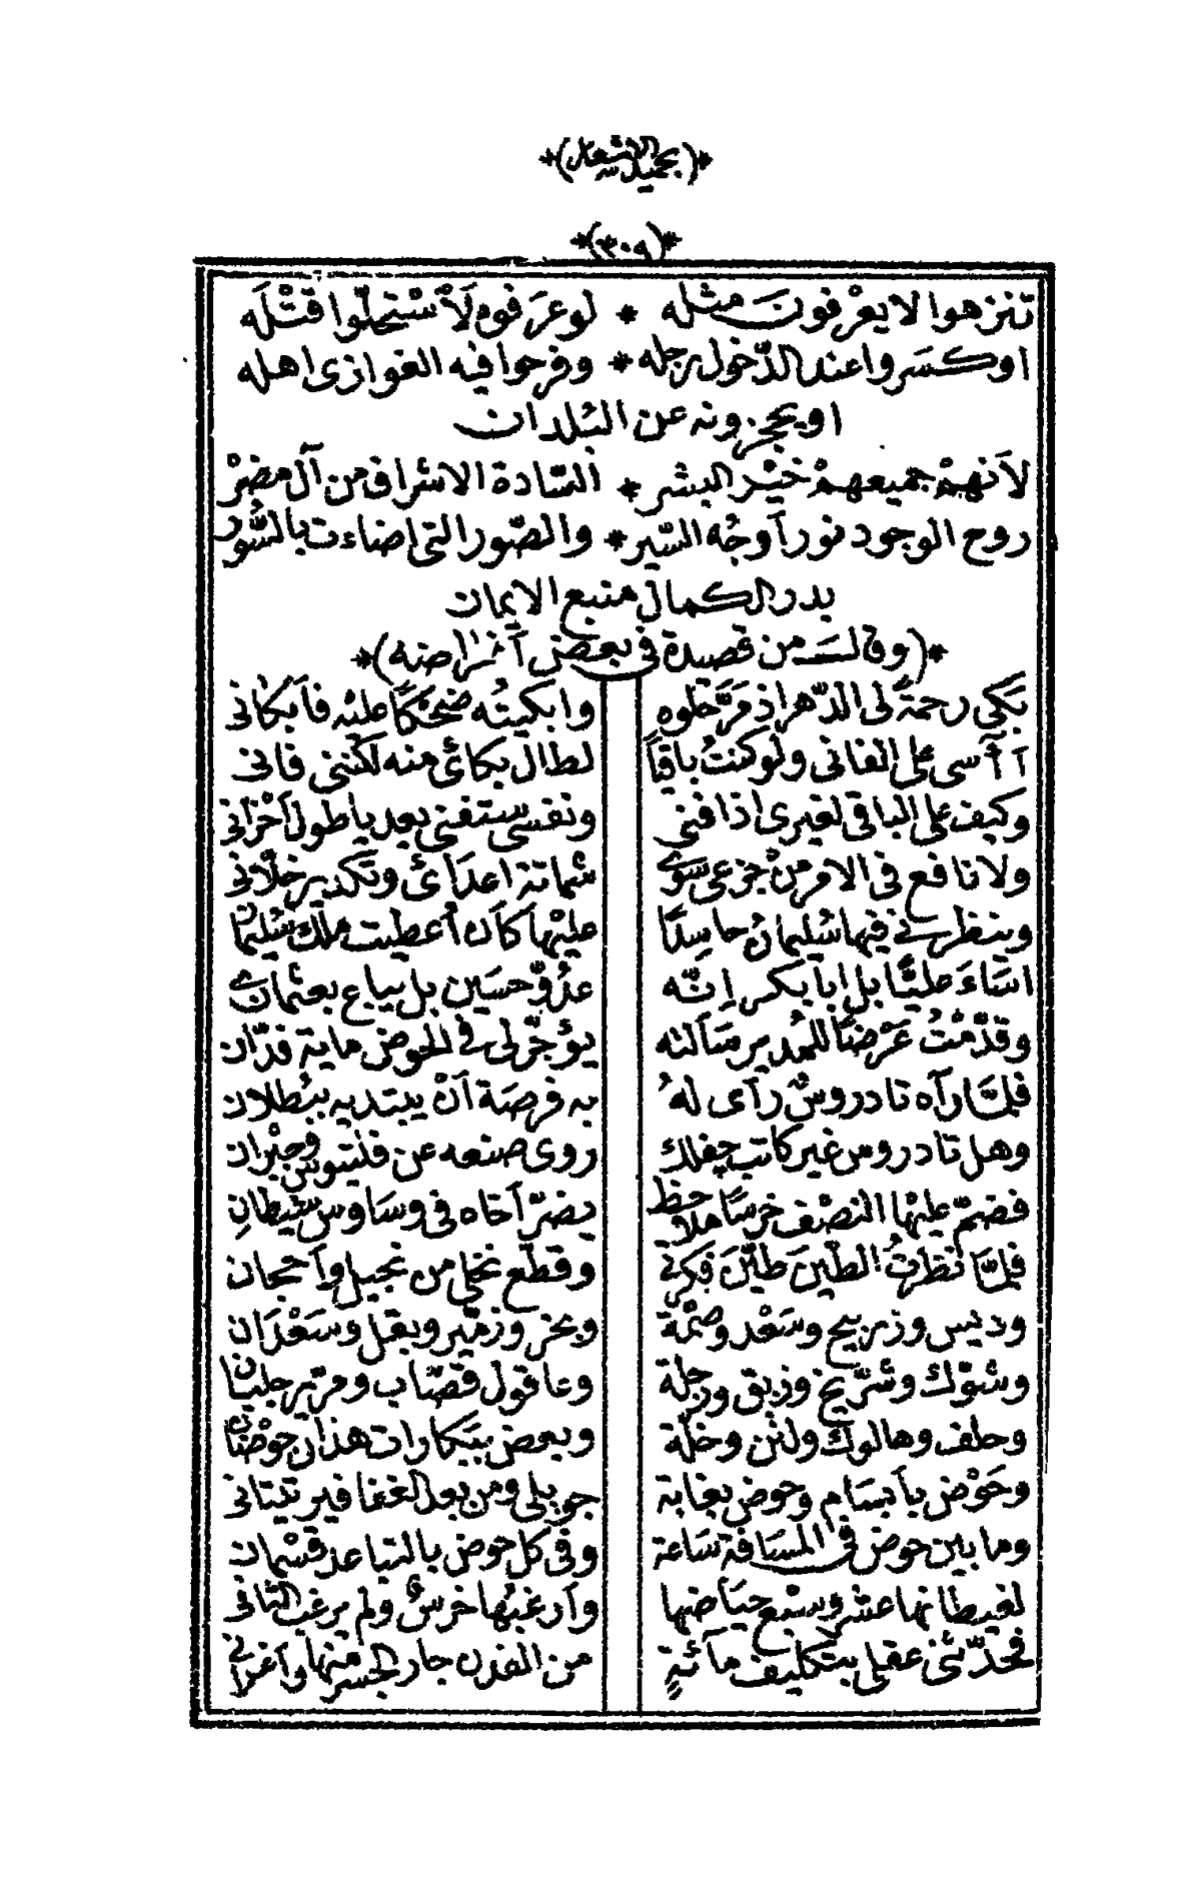 *(بحميد الاشعار)*
*(٣٠٩)*
تنزهوا لا يعرفون مثله * لو عرفوه لاستحلّوا قتله
او كسروا عند الدّخول رجله * وفرحوا فيه الغوازى اهله
او يحجزونه عن البلدان
لأنهم جميعهم خير البشر * السّادة الاشراف من آل مضر
روح الوجود نور أوجُه السّير * والصّور التى اضاءت بالسُّور
بدر الكمال منبع الايمان
*(وقالــ من قصيدة فى بعض أغراضه)*
بَكى رحمةً لى الدّهر اذ مرّ حلوه وابكيتُه ضحكًا عليه فأبكانى
أ أآسى على الفانى ولو كنتُ باقياً لطال بكائ منه لكننى فانى
وكيف على الباقى لغيرى اذا فنى ونفسى ستفنى بعد يا طول أحزانى
ولا نافع فى الامر من جزعى سوى شماتة اعدائ وتكدير خلّانى
وينظرنى فيها سُليمانُ حاسدًا عليها كأن أُعطيت ملك سُليمان
اساءَ عليًّا بل ابا بكر إنّه عدُوّ حسَين بل يباع بعثمان
وقدّمْتُ عَرْضًا للمدير مسَالته يؤجّر لى فى الحوض ماية فدّان
فلمّا رآه تادروسٌ رأى لهُ به فرصَة أنْ يبتديه ببُطلان
وهل تادروس غير كاتب جفلك روى صنعه عن فلتيوس وجبْران
فضمّ عليْها النصْف خرسًا ملاق حظ يضرّ أخاه فى وسَاوس شيطانِ
فلمّا نظرتُ الطّين طيّنَ فكرتى وقطّع نخلى من نجيل وأحجان
وديس وزمريح وسَعْد وصْمّة وبخر وزمّير وبقل وسَعْدَان
وشوّك وشرّيخ وزيق ورجلة وعاقول قصّاب ومرّير جلبان
وحلف وهالوك ولثن وخلّة وبعض بيكارات هذان حوْضان
وحَوْض بأبسَام وحوض بغابة جوبلى ومن بعد الغفا فيرتنتانى
وما بين حوض فى المسَافة سَاعة وفى كل حوض بالتباعد قسْمان
لغيطانها عشر وسبع حيَاضها وأرغبُها خرسٌ ولم يرغب الثانى
فحدّثنى عقلى بتكليف مأئةٍ من الفدن جار الجسر منها وأغرانى